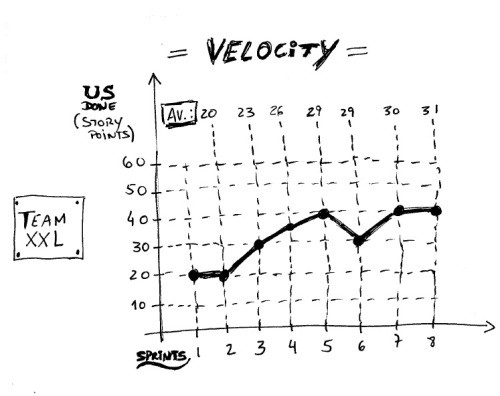 = VELOCITY =
US
DONE
(STORY
POINTS)
Av.: 20 23 26 29 29 30 31
60
50
40
30
20
10
TEAM
XXL
SPRINTS 1 2 3 4 5 6 7 8